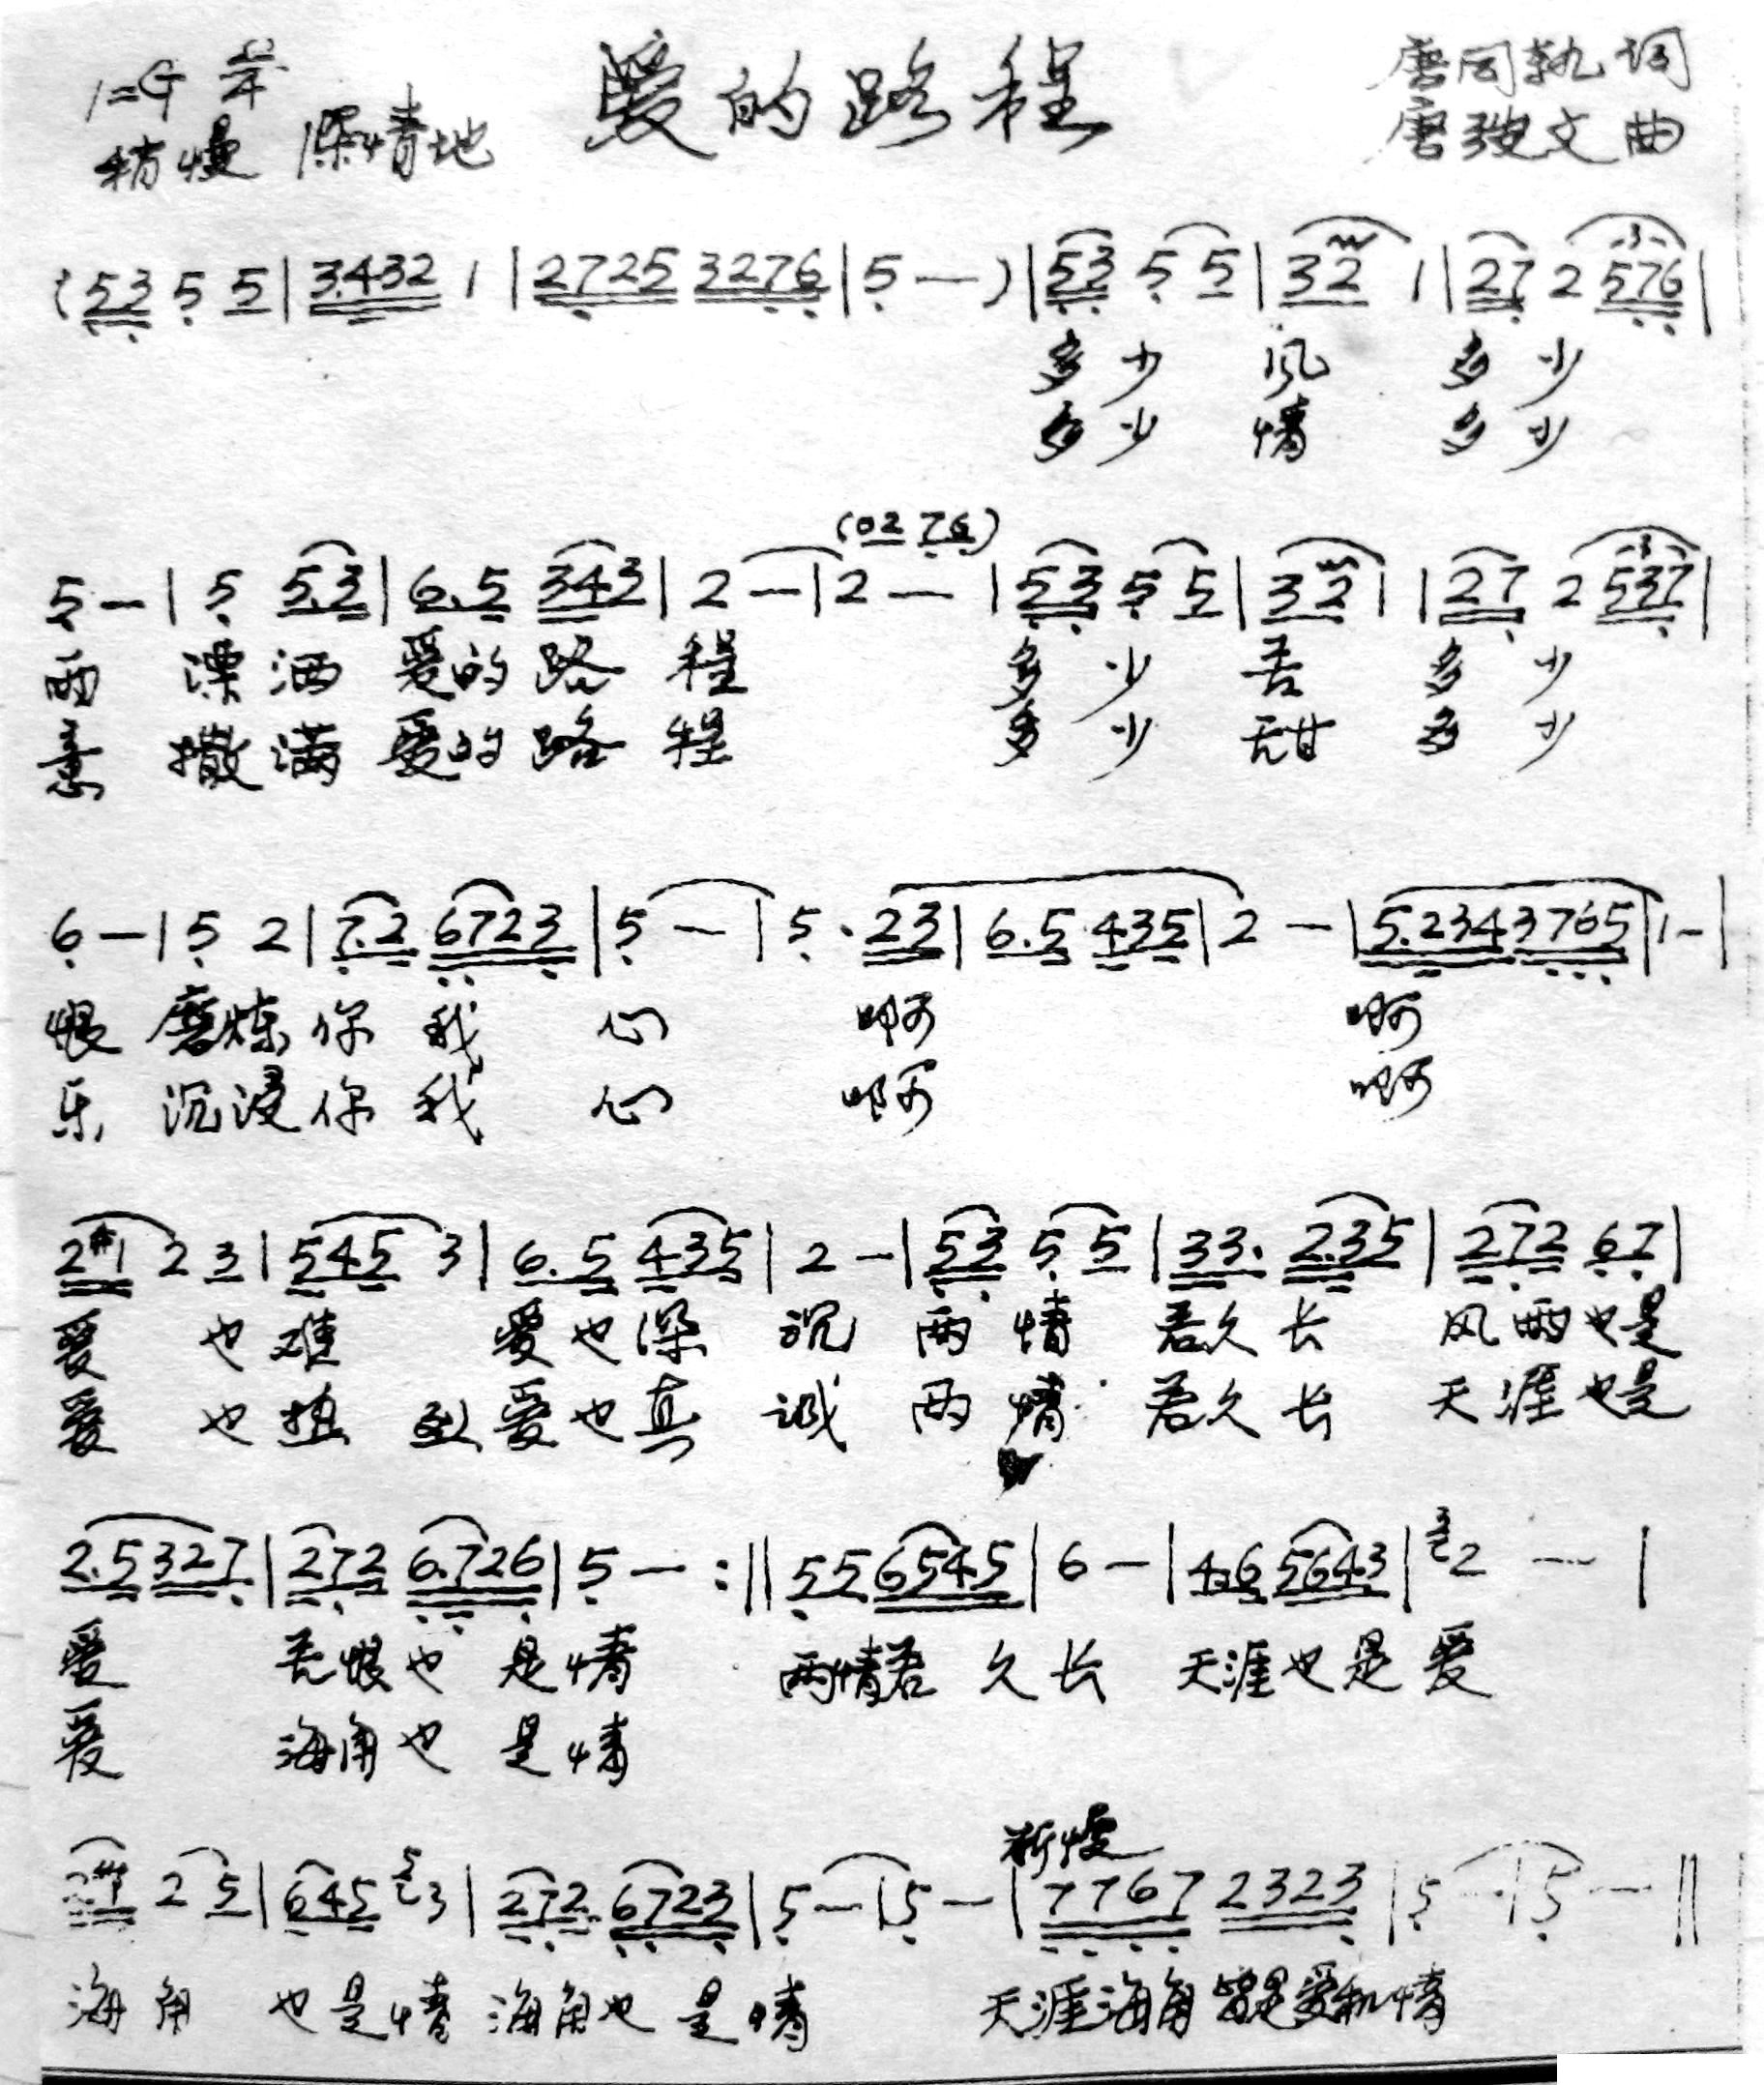 1=G 2/4 爱的路程 唐同轨词
稍慢 深情地 唐弢文曲
(53 5 5|3.432 1|2725 3276|5 —)|53 5 5|32 1|27 2 576|
多少 风 多少
多少 情 多少
(02 76)
5 —|5 5.3|6.5 343|2 —|2 —|53 5 5|32 1|27 2 537|
雨 漂洒 爱的路 程 多少 苦 多少
意 撒满 爱的路 程 多少 甜 多少
6 —|5 2|7.2 6723|5 —|5. 23|6.5 435|2 —|5.234 3765|1 —|
恨 磨炼你 我 心 啊 啊
乐 沉浸你 我 心 啊 啊
2#1 2 3|545 3|6.5 435|2 —|53 5 5|33. 2.35|272 67|
爱 也难 爱也深 沉 两情 若久长 风雨也是
爱 也 爱也真 诚 两情 若久长 天涯也是
2.5 327|272 6.726|5 — :||55 6545|6 —|4.6 5643|3 2 —|
爱 苦恨也 是情 两情若 久长 天涯也是爱
爱 海角也 是情
渐慢
2#1 2 5|645 5 3|272 6723|5 —|5 —|7767 2323|5 —|5 —||
海角 也是情 海角也 是情 天涯海角皆是爱和情